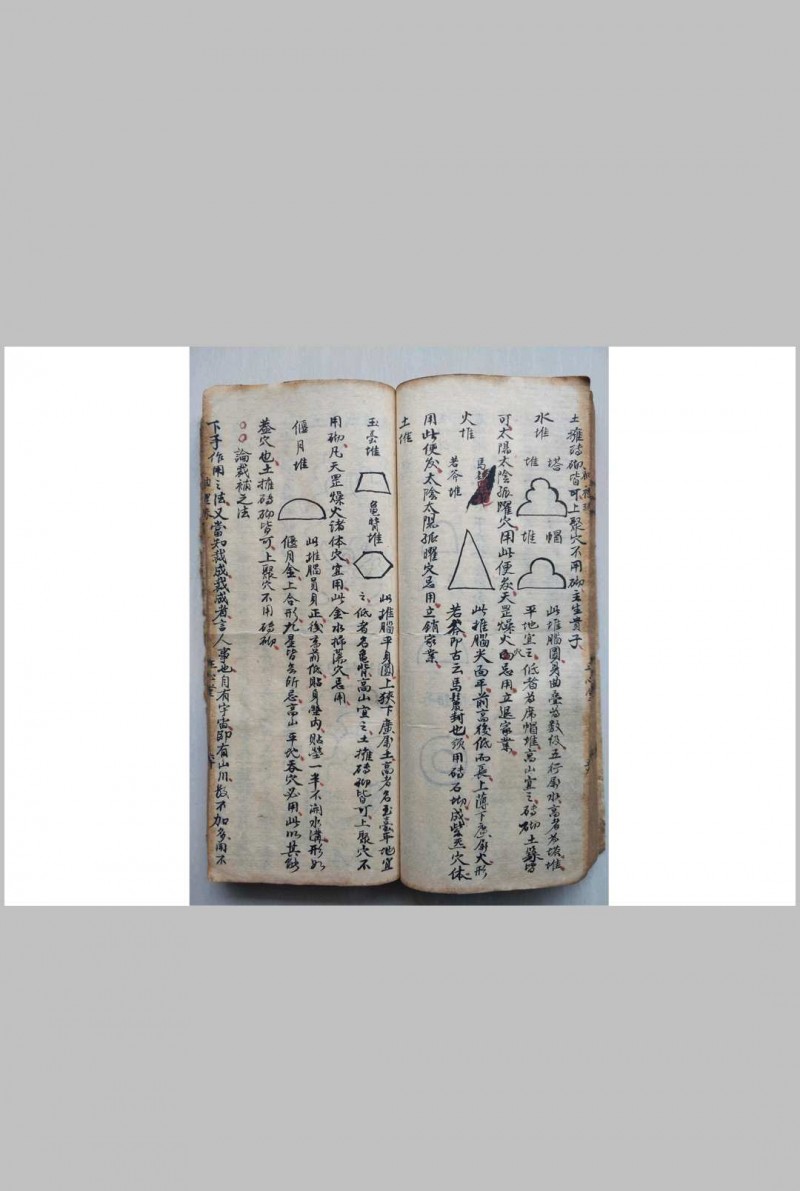 土擁磚砌皆可上聚穴不用砌主生貴子
水堆
塔堆
帽堆
此堆腦圓身曲疊為數級五行屬水高者為塔堆
平地宜之低者為席帽堆高山宜之磚砌土築皆
可太陽太陰振躍穴用此便發天罡燥火忌用立退家業
火堆
馬
若斧堆
此堆腦尖面平前高後低而長上薄下廣屬火形
若斧即古云馬鬣封也須用磚石砌成紫炁穴体
用此便發太陰太陽振曜穴忌用立銷家業
土堆
玉臺堆
龜背堆
此堆腦平身圓上狹下廣屬土高者名玉臺平地宜
之低者名龜背高山宜之土擁磚砌皆可上聚穴不
用砌凡天罡燥火諸体穴宜用此金水掃蕩穴忌用
偃月堆
此堆腦員身正後高前低貼身墊內貼墊一半不開水溝形如
偃月金上合形九星皆無所忌高山平地吞穴必用此以其能
蓋穴也土擁磚砌皆可上聚穴不用磚砌
○○論裁補之法
下手作用之法又當知裁成裁成者言人事也自有宇宙即有山川數不加多用不